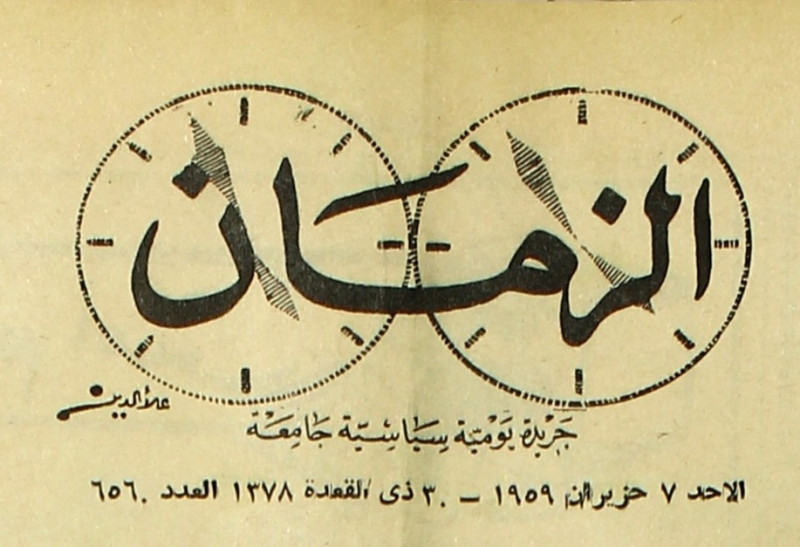 الزمان
علاء الدين
جَريدة يَوْميّة سِيَاسِيّة جَامِعَة
الاحد ٧ حزيران ١٩٥٩ – ٣٠ ذى القعدة ١٣٧٨ العدد ٦٥٦٠